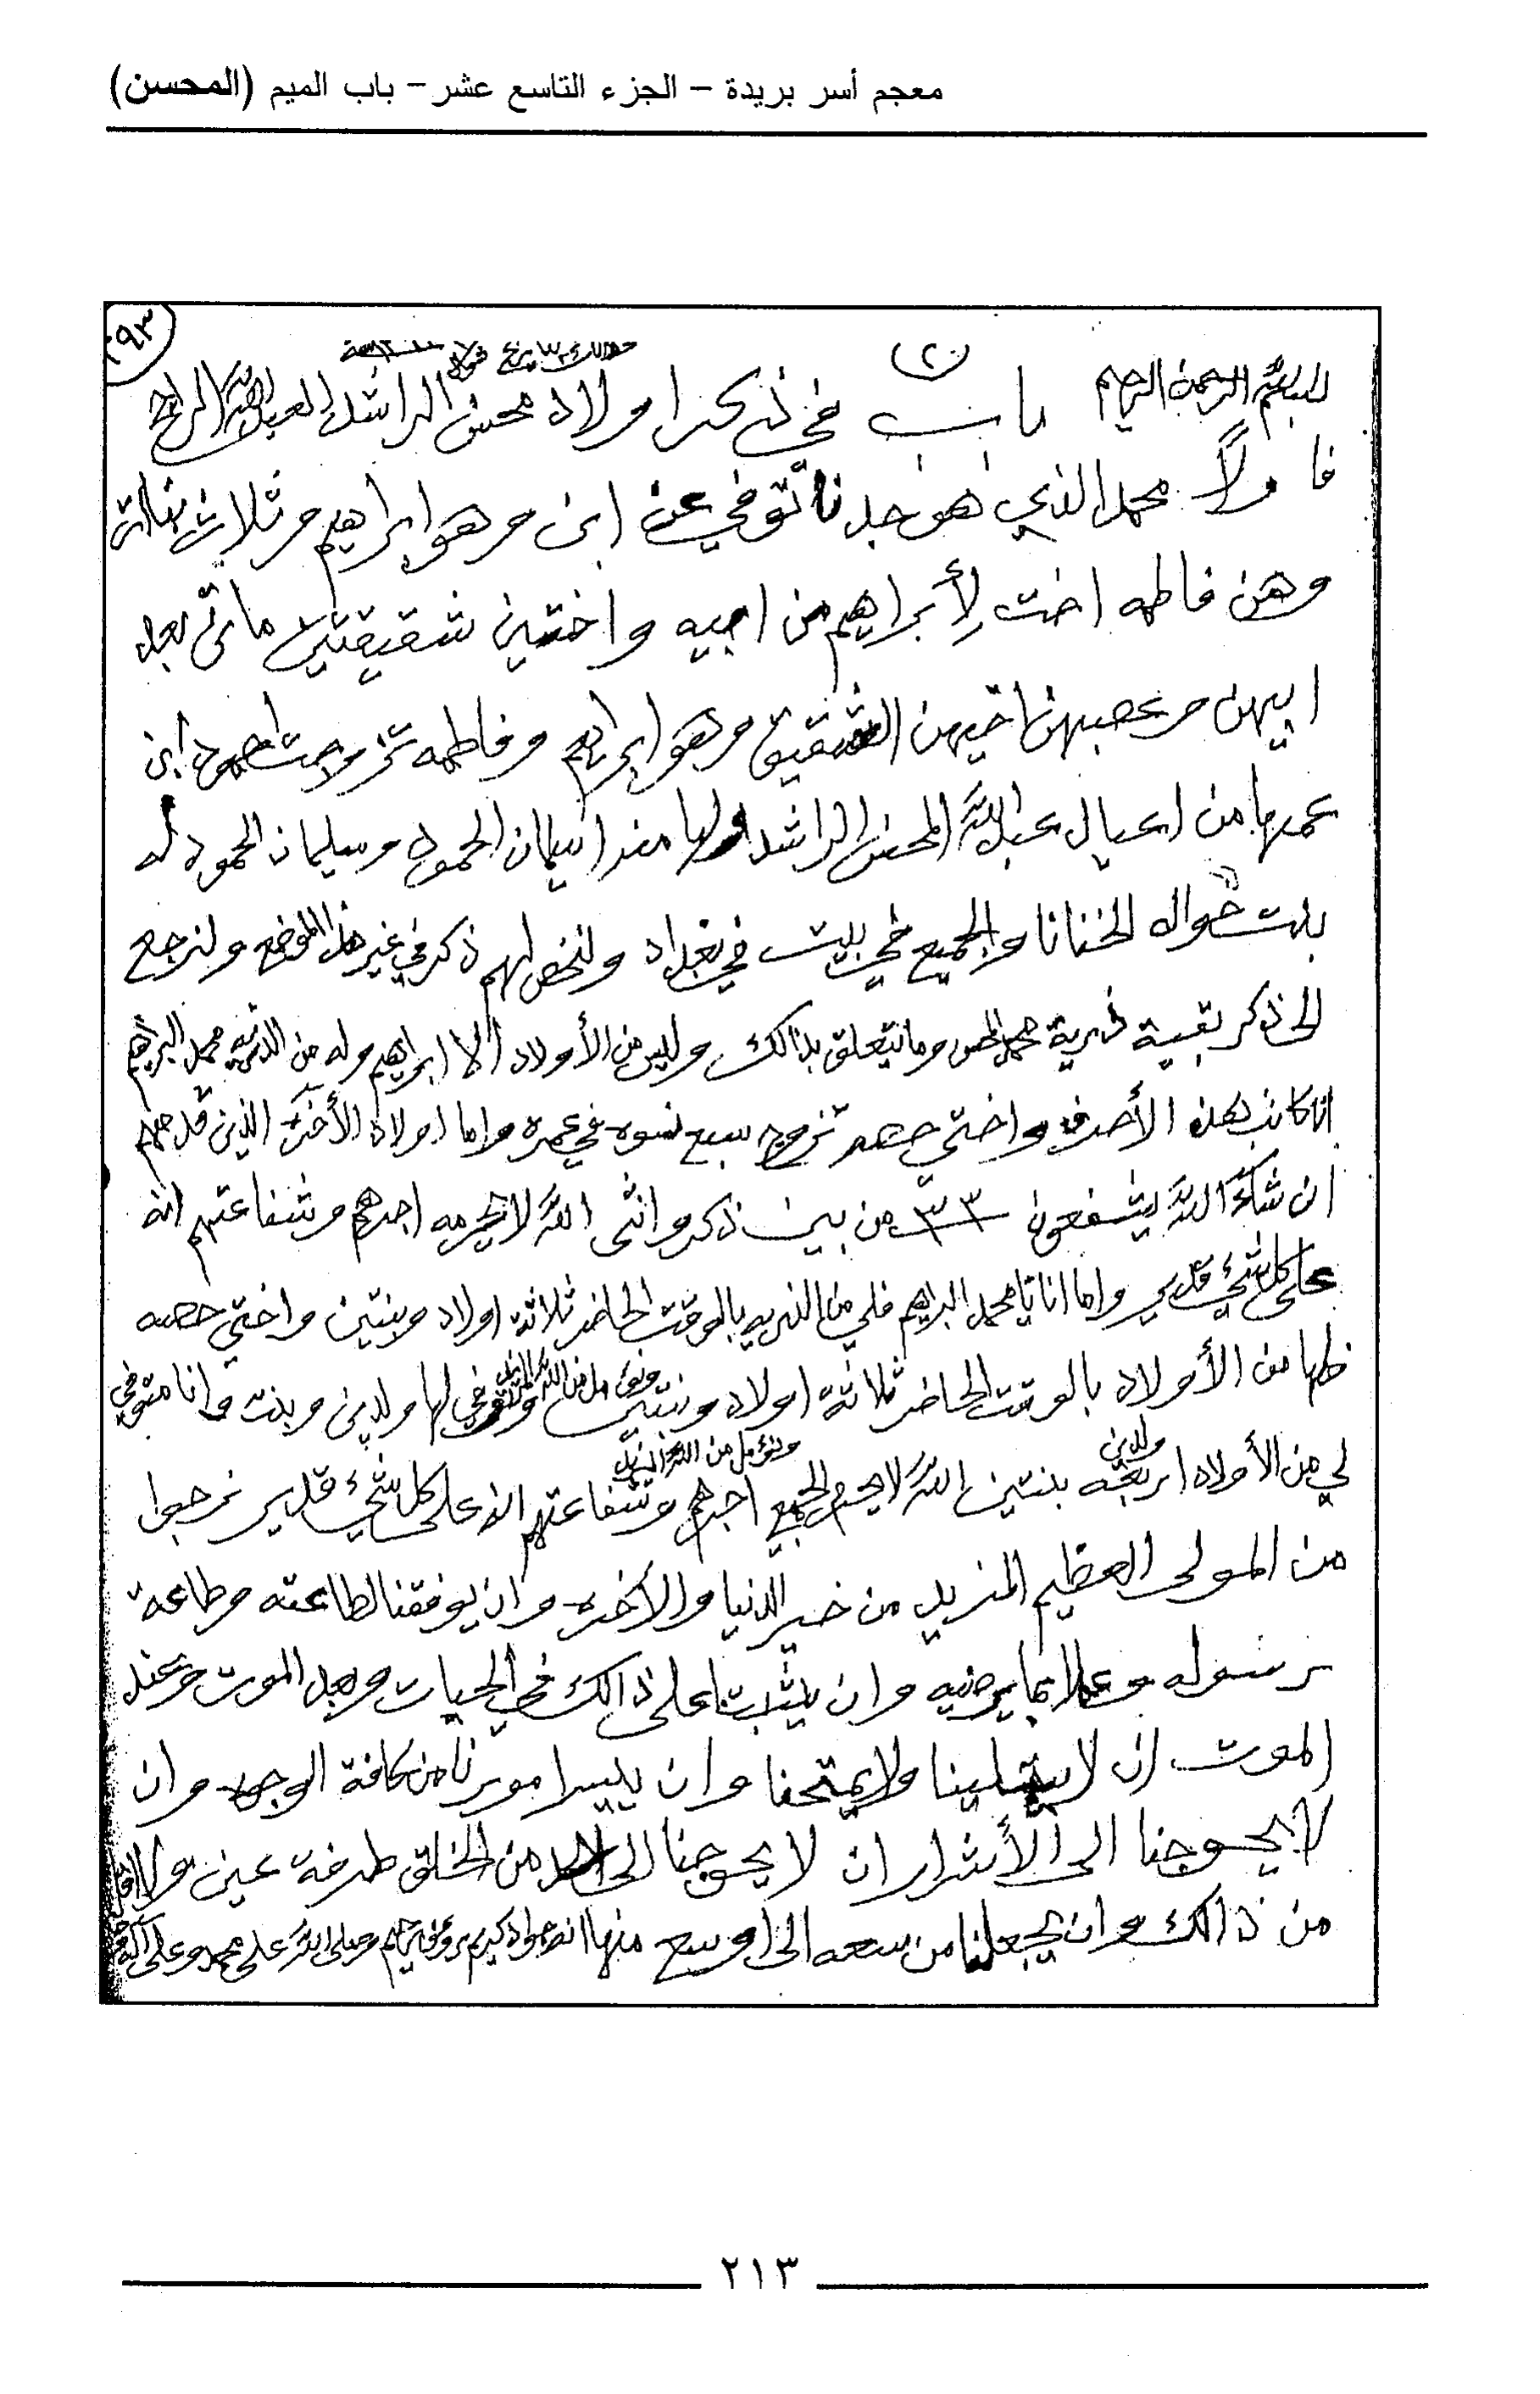 معجم أسر بريدة – الجزء التاسع عشر – باب الميم (المحسن)
(٢)
بسم الله الرحمن الرحيم باب في ذكر اولاد محسن الراشد
فا ولاً محمد الذي هو جدنا توفي عن ابن وهو ابراهيم وثلاث بنات
وهن فاطمه اخت لأبراهيم من ابيه واختين شقيقتين ماتن بعد
ابيهن وعصبهن اخيهن الشقيق وهو ابراهيم وفاطمه تزوجت حمود ابن
عمها من اعيال عبدالله المحسن الراشد ولها منه اسليمان الحمود وسليمان الحمود له
بنت خواله الخنانا والجميع في بيت في بغداد ولنخص لهم ذكر في غير هذا الموضع ولنرجع
الى ذكر بقية ذرية محمد المحسن وما يتعلق بذالك وليس من الأولاد الا ابراهيم وله من الذريه محمد البراهيم
انا كاتب هذه الأحرف واختي حصه تزوج سبع نسوه في عمره واما اولاد الأخره الذين قد مهم
ان شاء الله يشفعون ٣٣ من بين ذكر وانثى الله لا يحرمه اجرهم وشفاعتهم انه
على كل شيء قدير واما انا يا محمد البراهيم فلي من الذريه بالوقت الحاضر ثلاثة اولاد وبنتين واختي حصه
فلها من الأولاد بالوقت الحاضر ثلاثة اولاد وبنتين ونؤمل من الله المزيد وتوفي لها ولدين وبنت وانا متوفي
لي من الأولاد اربعه ولدين بنتين الله لا يحرم الجميع اجرهم وشفاعتهم انه على كل شيء قدير نرجوا
ونؤمل من الله المزيد
من المولى العظيم المزيد من خير الدنيا والآخره وان يوفقنا لطاعته وطاعة
رسوله وعملا بما يرضيه وان يثبتنا على ذالك في الحيات وبعد الموت وعند
الموت ان لا يبتلينا ولا يمتحنا وان ييسر امورنا من كافة الوجوه وان
لا يحوجنا الى الأشرار ان لا يحوجنا الى احد من الخلق طرفة عين ولا اقل
من ذالك وان يجعلنا من سعه الى اوسع منها انه جواد كريم رؤف رحيم وصلى الله على محمد وعلى آله
٢١٣